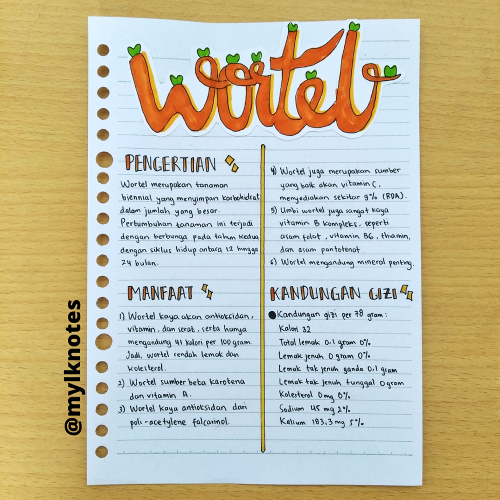 Wortel
PENGERTIAN
Wortel merupakan tanaman
biennial yang menyimpan karbohidrat
dalam jumlah yang besar.
Pertumbuhan tanaman ini terjadi
dengan berbunga pada tahun kedua
dengan siklus hidup antara 12 hingga
24 bulan.
MANFAAT
1) Wortel kaya akan antioksidan,
vitamin, dan serat, serta hanya
mengandung 41 kalori per 100 gram.
Jadi, wortel rendah lemak dan
kolesterol.
2) Wortel sumber beta karotena
dan vitamin A.
3) Wortel kaya antioksidan dari
poli-acetylene falcarinol.
4) Wortel juga merupakan sumber
yang baik akan vitamin C,
menyediakan sekitar 9% (RDA).
5) Umbi wortel juga sangat kaya
vitamin B kompleks, seperti
asam folat, vitamin B6, thiamin,
dan asam pantotenat
6) Wortel mengandung mineral penting.
KANDUNGAN GIZI
Kandungan gizi per 78 gram:
Kalori 32
Total lemak 0.1 gram 0%
Lemak jenuh 0 gram 0%
Lemak tak jenuh ganda 0.1 gram
Lemak tak jenuh tunggal 0 gram
Kolesterol 0 mg 0%
Sodium 45 mg 2%
Kalium 183,3 mg 5%
@mylknotes